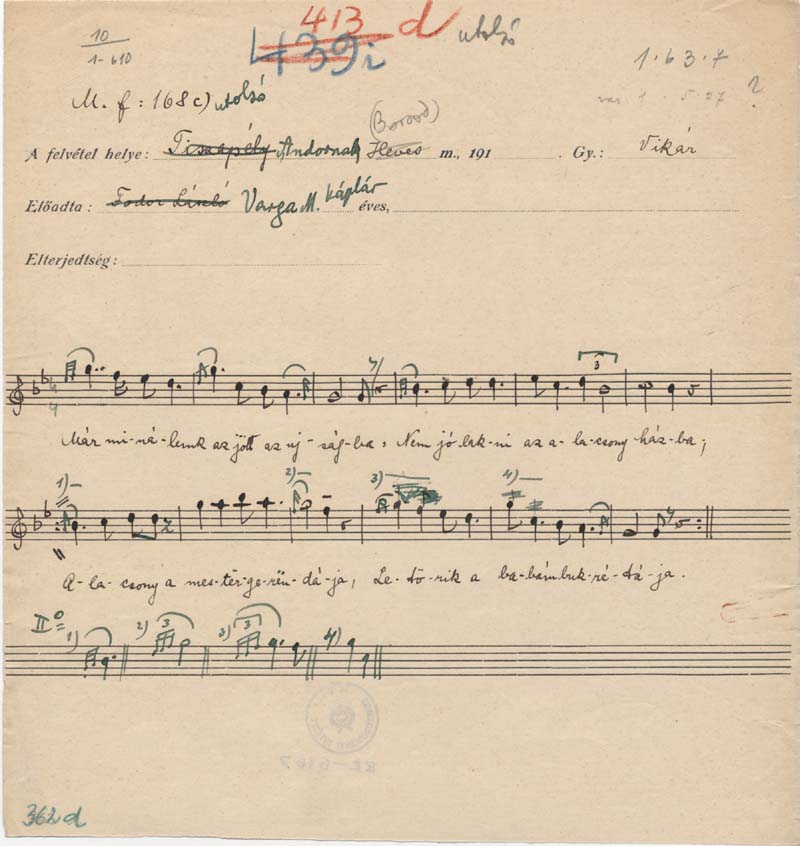 10
1-610
413 d utolsó
439i
1.63.7
var 1. 5 27 ?
M. f: 168c) utolsó
(Borsod)
A felvétel helye: Tiszapély Andornak Heves m., 191 . Gy.: Vikár
Előadta: Fodor László Varga M. káplár éves,
Elterjedtség:
3
Már mi-ná-lunk az jött az uj-ság-ba, Nem jó lak-ni az a-la-csony ház-ba;
1) 2) 3) 4)
A-la-csony a mes-tër-ge-rën-dá-ja, Le-tö-rik a ba-bám buk-ré-tá-ja.
II° = 1) 2) 3 3) 3 4)
362 d